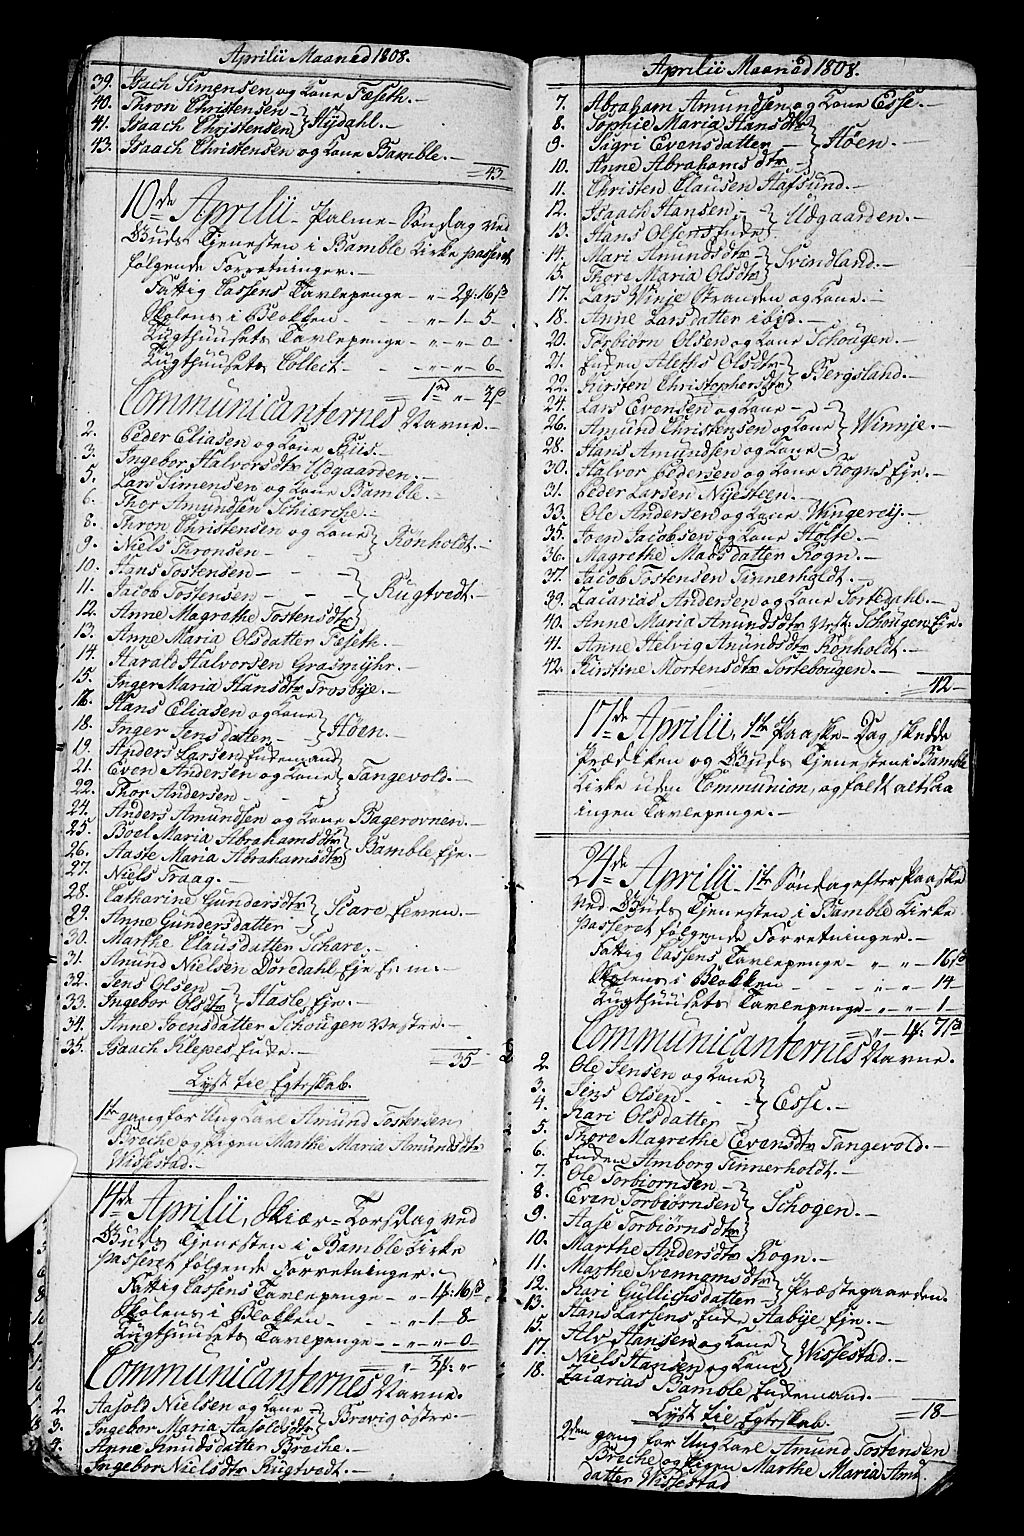 Aprilii Maaned 1808.
39. Isach Simensen og Kone Feseth.-
40. Thron Christensen-
41. Isaach Christensen } Hydahl.-
43. Isaach Christensen og Kone Bamble.-
=43-
10de Aprilii - Palme-Søndag ved
Guds Tjenesten i Bamble Kirke passeret
følgende Forretninger.-
Fattig Cassens Tavlepenge - " 2#:16 ß
Skolens i Blokken - - - " - 1 - 5 -
Tugthuusets Tavlepenge - " - " - 0
Tugthuusets Collect. - - " - " - 6 -
Communicanternes Navne.-
2. Peder Eliasen og Kone
3. Ingebor Halvorsdtr Udgaarden.-
5. Lars Simensen og Kone Bamble.-
6. Thor Amundsen Schiærche.-
8. Thron Christensen og Kone
9. Niels Thronsen - - } Rønholdt.-
10. Hans Tostensen - - -
11. Jacob Tostensen - - - } Rugtvedt.-
12. Anne Magrethe Tostensdtr
13. Anne Maria Olsdatter Feseth.-
14. Harald Halvorsen Grasmyhr.-
15. Inger Maria Hansdtr Trosbye.-
16. Hans Eliasen og Kone
18. Inger Jensdatter - } Høen.-
19. Anders Larsen Enkemand
21. Even Andersen og Kone } Tangevold.-
22. Thor Andersen
24. Anders Amundsen og Kone Bagerovnen.-
25. Boel Maria Abrahamsdtr
26. Aaste Maria Abrahamsdtr } Bamble Eje.-
27. Niels Traag.-
28. Catharine Gundersdtr
29. Anne Gundersdatter } Scare
30. Marthe Clausdatter Schare.-
31. Amund Nielsen Dørdahl Eje
32. Jens Olsen
33. Ingebor Olsdtr } Hasle Eje.-
34. Anne Joensdatter Schougen Vestre.-
35. Isaach Klepes Enke.-
=35-
Lyst til Egteskab.
1te gang for Ung Karl Amund Tostensen
Breche og Pigen Marthe Maria Amundsdtr
Wissestad.-
14de Aprilii, Skiær=Torsdag ved
Guds Tjenesten i Bamble Kirke
passeret følgende Forretninger.-
Fattig Cassens Tavlepenge - " 1#:16 ß
Skolens i Blokken - - - " 1 - 8 -
Tugthuusets Tavlepenge - " - " 0
Communicanternes Navne.
2. Aasold Nielsen og Kone
3. Ingebor Maria Aasoldsdtr } Brevig østre.-
4. Anne Knudsdatter Breche.-
Ingebor Nielsdtr Rugtvedt.-
Aprilii Maaned 1808.
7. Abraham Amundsen og Kone Esse.-
8. Sophie Maria Hansdtr
9. Sigri Evensdatter - } Høen.-
10. Anne Abrahamsdtr
11. Christen Clausen Hafsund.-
12. Isaach Hansen -
13. Hans Olsens Enke } Udgaarden.-
14. Mari Amundsdtr -
15. Thore Maria Olsdtr } Svindland.-
17. Lars Vinje Stranden og Kone.-
18. Anne Larsdatter ibid.-
20. Torbiørn Olsen og Kone Schougen.-
21. Enken Alethe Olsdtr
22. Kirsten Christophersdtr } Bergsland.-
24. Lars Evensen og Kone -
26. Amund Christensen og Kone } Winnje.-
28. Hans Amundsen og Kone
30. Halvor Pedersen og Kone Rogns Eje.-
31. Peder Larsen Nyesteen.-
33. Ole Andersen og Kone Wingereij.-
35. Joen Jacobsen og Kone Holte.-
36. Magrethe Madsdatter Rogn.-
37. Jacob Tostensen Tinnerholdt.-
39. Zacarias Andersen og Kone Sortedahl.-
40. Anne Maria Amundsdtr Schougen Eje.
41. Anne Helvig Amundsdtr Rønholdt.-
42. Kirstine Mortensdtr Sortebougen.-
=42-
17de Aprilii, 1te Paaske-Dag skedde
Prædiken og Guds Tjenesten i Bamble
Kirke uden Communion, og faldt altsaa
ingen Tavlepenge.-
24de Aprilii - 1te Søndag efter Paaske
ved Guds Tjenesten i Bamble Kirke
passeret følgende Forretninger.-
Fattig Cassens Tavlepenge - " - " - 16 ß
Skolens i Blokken - - - " - " 14 -
Tugthuusets Tavlepenge - " - " - 1 -
Communicanternes Navne.
2. Ole Jensen og Kone
3. Jens Olsen - -
4. Kari Olsdatter } Esse.-
5. Thore Magrethe Evensdtr Tangevold.-
6. Enken Amborg Tinnerholdt.-
7. Ole Torbiornsen -
8. Even Torbiørnsen } Schogen.-
9. Aase Torbiørnsdtr
10. Marthe Andersdtr Rogn.-
11. Marthe Svennumsdtr
12. Kari Gullichsdatter - } Præstegaarden.
13. Hans Larsens Enke Aabye Eje.-
15. Alv Hansen og Kone
17. Niels Hansen og Kone } Wissestad.-
18. Zacarias Bamble Enkemand.-
=18-
Lyst til Egteskab.
2den gang for Ung Karl Amund Tostensen
Breche og Pigen Marthe Maria
datter Wissestad